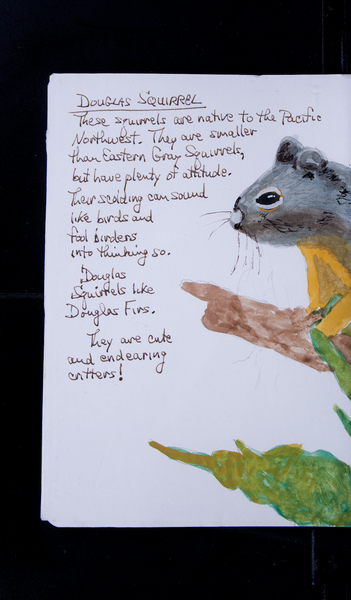 DOUGLAS SQUIRREL
These squirrels are native to the Pacific
Northwest. They are smaller
than Eastern Gray Squirrels,
but have plenty of attitude.
Their scolding can sound
like birds and
fool birders
into thinking so.
Douglas
Squirrels like
Douglas Firs.
They are cute
and endearing
critters!